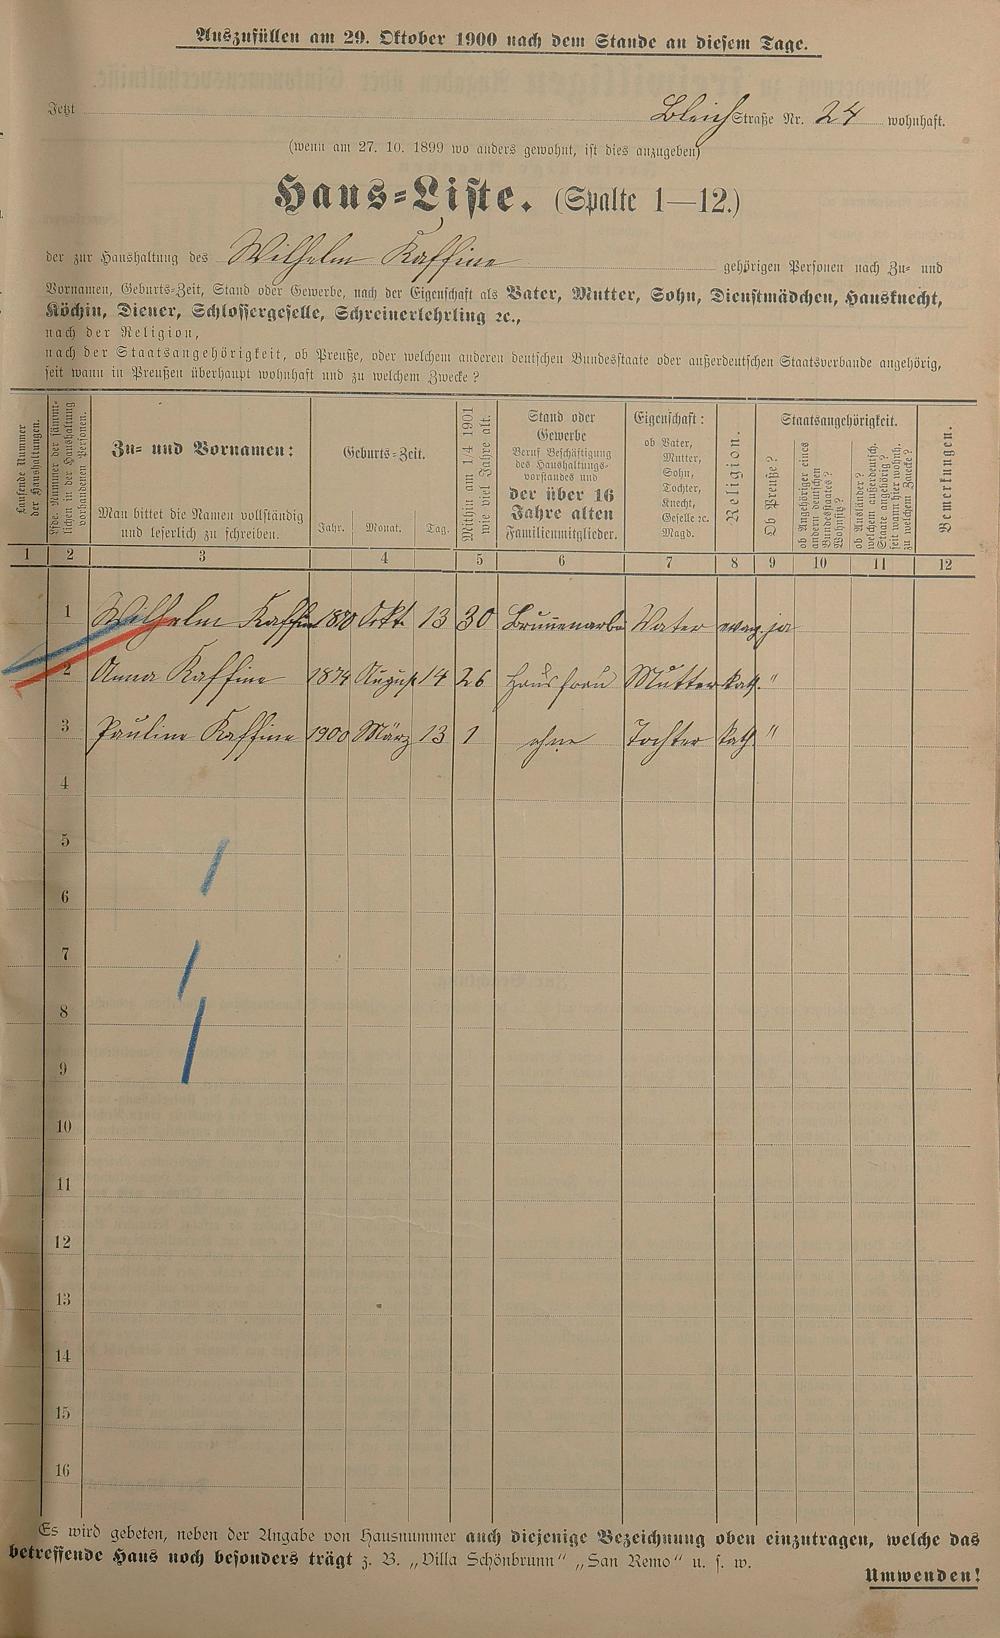 Auszufüllen am 29. Oktober 1900 nach dem Stande an diesem Tage.
Jetzt Bleich Straße Nr. 24 wohnhaft.
(wenn am 27. 10. 1899 wo anders gewohnt, ist dies anzugeben)
Haus-Liste. (Spalte 1—12.)
der zur Haushaltung des Wilhelm Kaffine gehörigen Personen nach Zu- und
Vornamen, Geburts-Zeit, Stand oder Gewerbe, nach der Eigenschaft als Vater, Mutter, Sohn, Dienstmädchen, Hausknecht,
Köchin, Diener, Schlossergeselle, Schreinerlehrling ꝛc.,
nach der Religion,
nach der Staatsangehörigkeit, ob Preuße, oder welchem anderen deutschen Bundesstaate oder außerdeutschen Staatsverbande angehörig,
seit wann in Preußen überhaupt wohnhaft und zu welchem Zwecke?
Laufende Nummer
der Haushaltungen.
Lfde. Nummer der sämmt-
lichen in der Haushaltung
vorhandenen Personen.
Zu- und Vornamen:
Man bittet die Namen vollständig
und leserlich zu schreiben.
Geburts-Zeit.
Jahr. Monat. Tag.
Mithin am 1/4 1901
wie viel Jahre alt.
Stand oder
Gewerbe
Beruf Beschäftigung
des Haushaltungs-
vorstandes und
der über 16
Jahre alten
Familienmitglieder.
Eigenschaft:
ob Vater,
Mutter,
Sohn,
Tochter,
Knecht,
Geselle ꝛc.
Magd.
Religion.
Staatsangehörigkeit.
Ob Preuße?
ob Angehöriger eines
andern deutschen
Bundesstaates?
Wohnsitz?
ob Ausländer?
welchem außerdeutsch.
Staate angehörig?
seit wann hier wohnh.
zu welchem Zwecke?
Bemerkungen.
1 2 3 4 5 6 7 8 9 10 11 12
1 Wilhelm Kaffin Okt. 13 30 Brunnenarbei Vater evag. ja
2 Anna Kaffine 1874 August 14 26 Hausfrau Mutter kath. "
3 Pauline Kaffine 1900 März 13 1 ohne Tochter kath. "
4
5
6
7
8
9
10
11
12
13
14
15
16
Es wird gebeten, neben der Angabe von Hausnummer auch diejenige Bezeichnung oben einzutragen, welche das
betreffende Haus noch besonders trägt z. B. „Villa Schönbrunn" „San Remo" u. s. w.
Umwenden!